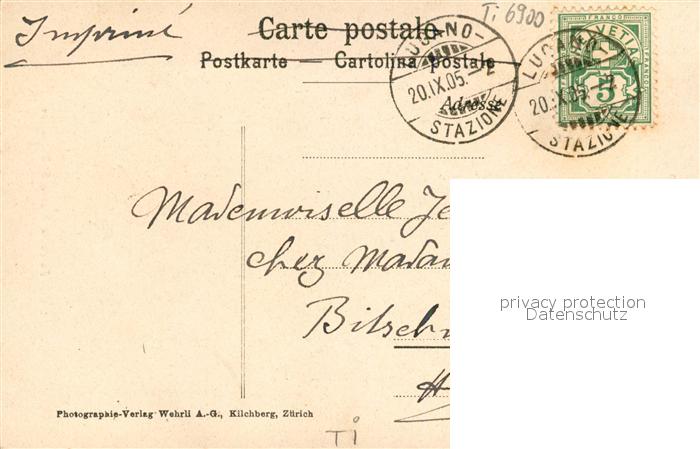 Imprimé
Ti 6900
Carte postale
Postkarte — Cartolina postale
Adresse
LUGANO-
20.IX.05.-2
STAZIONE
LUGANO-
20.IX.05.-2
STAZIONE
FRANCO
HELVETIA
FRANCO
5
Mademoiselle
chez
Photographie-Verlag Wehrli A.-G., Kilchberg, Zürich
Ti
privacy protection
Datenschutz